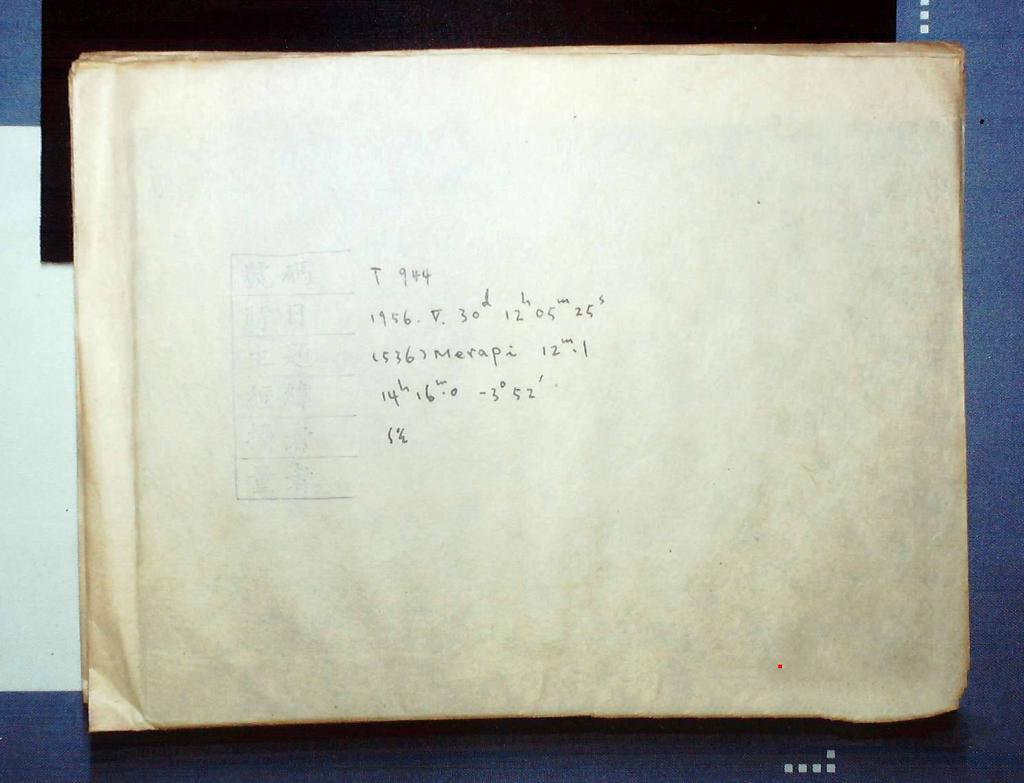 號碼 T 944
時日 1956. V. 30ᵈ 12ʰ 05ᵐ 25ˢ
主題 (536) Merapi 12ᵐ.1
經緯 14ʰ 16ᵐ.0 -3° 52'